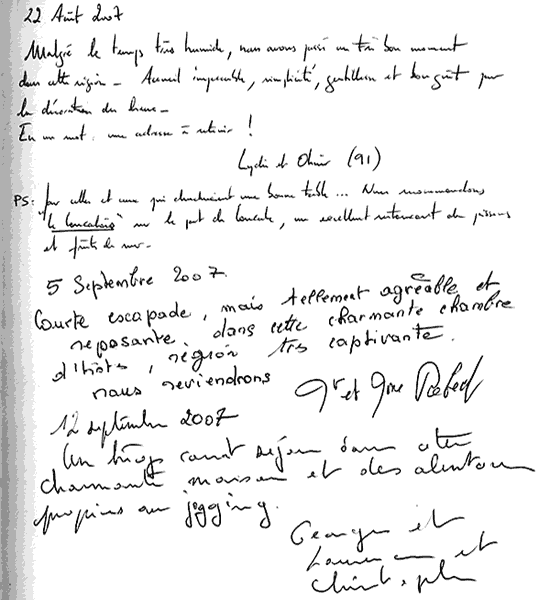 22 Août 2007
Malgré le temps très humide, nous avons passé un très bon moment
dans cette région - Accueil impeccable, simplicité, gentillesse et bon goût pour
la décoration des lieux -
En un mot : une adresse à retenir !
Lydie et Olivier (91)
PS: pour celles et ceux qui chercheraient une bonne table ... Nous recommandons
"le loucatois" sur le port de Leucate, un excellent restaurant de poissons
et fruits de mer -
5 Septembre 2007.
Courte escapade, mais tellement agréable et
reposante, dans cette charmante chambre
d'hôtes, région très captivante.
nous reviendrons
Mr et Mme
12 septembre 2007
Un trop court séjour dans cette
charmante maison et des alentours
propices au jogging.
Georges et
Laurence et
Christophe